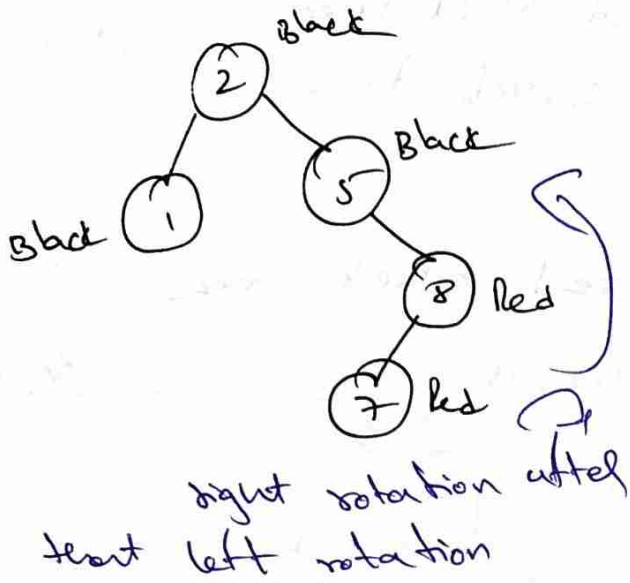 Black
2
Black
5
Black
1
8
Red
7
Red
right rotation after
that left rotation